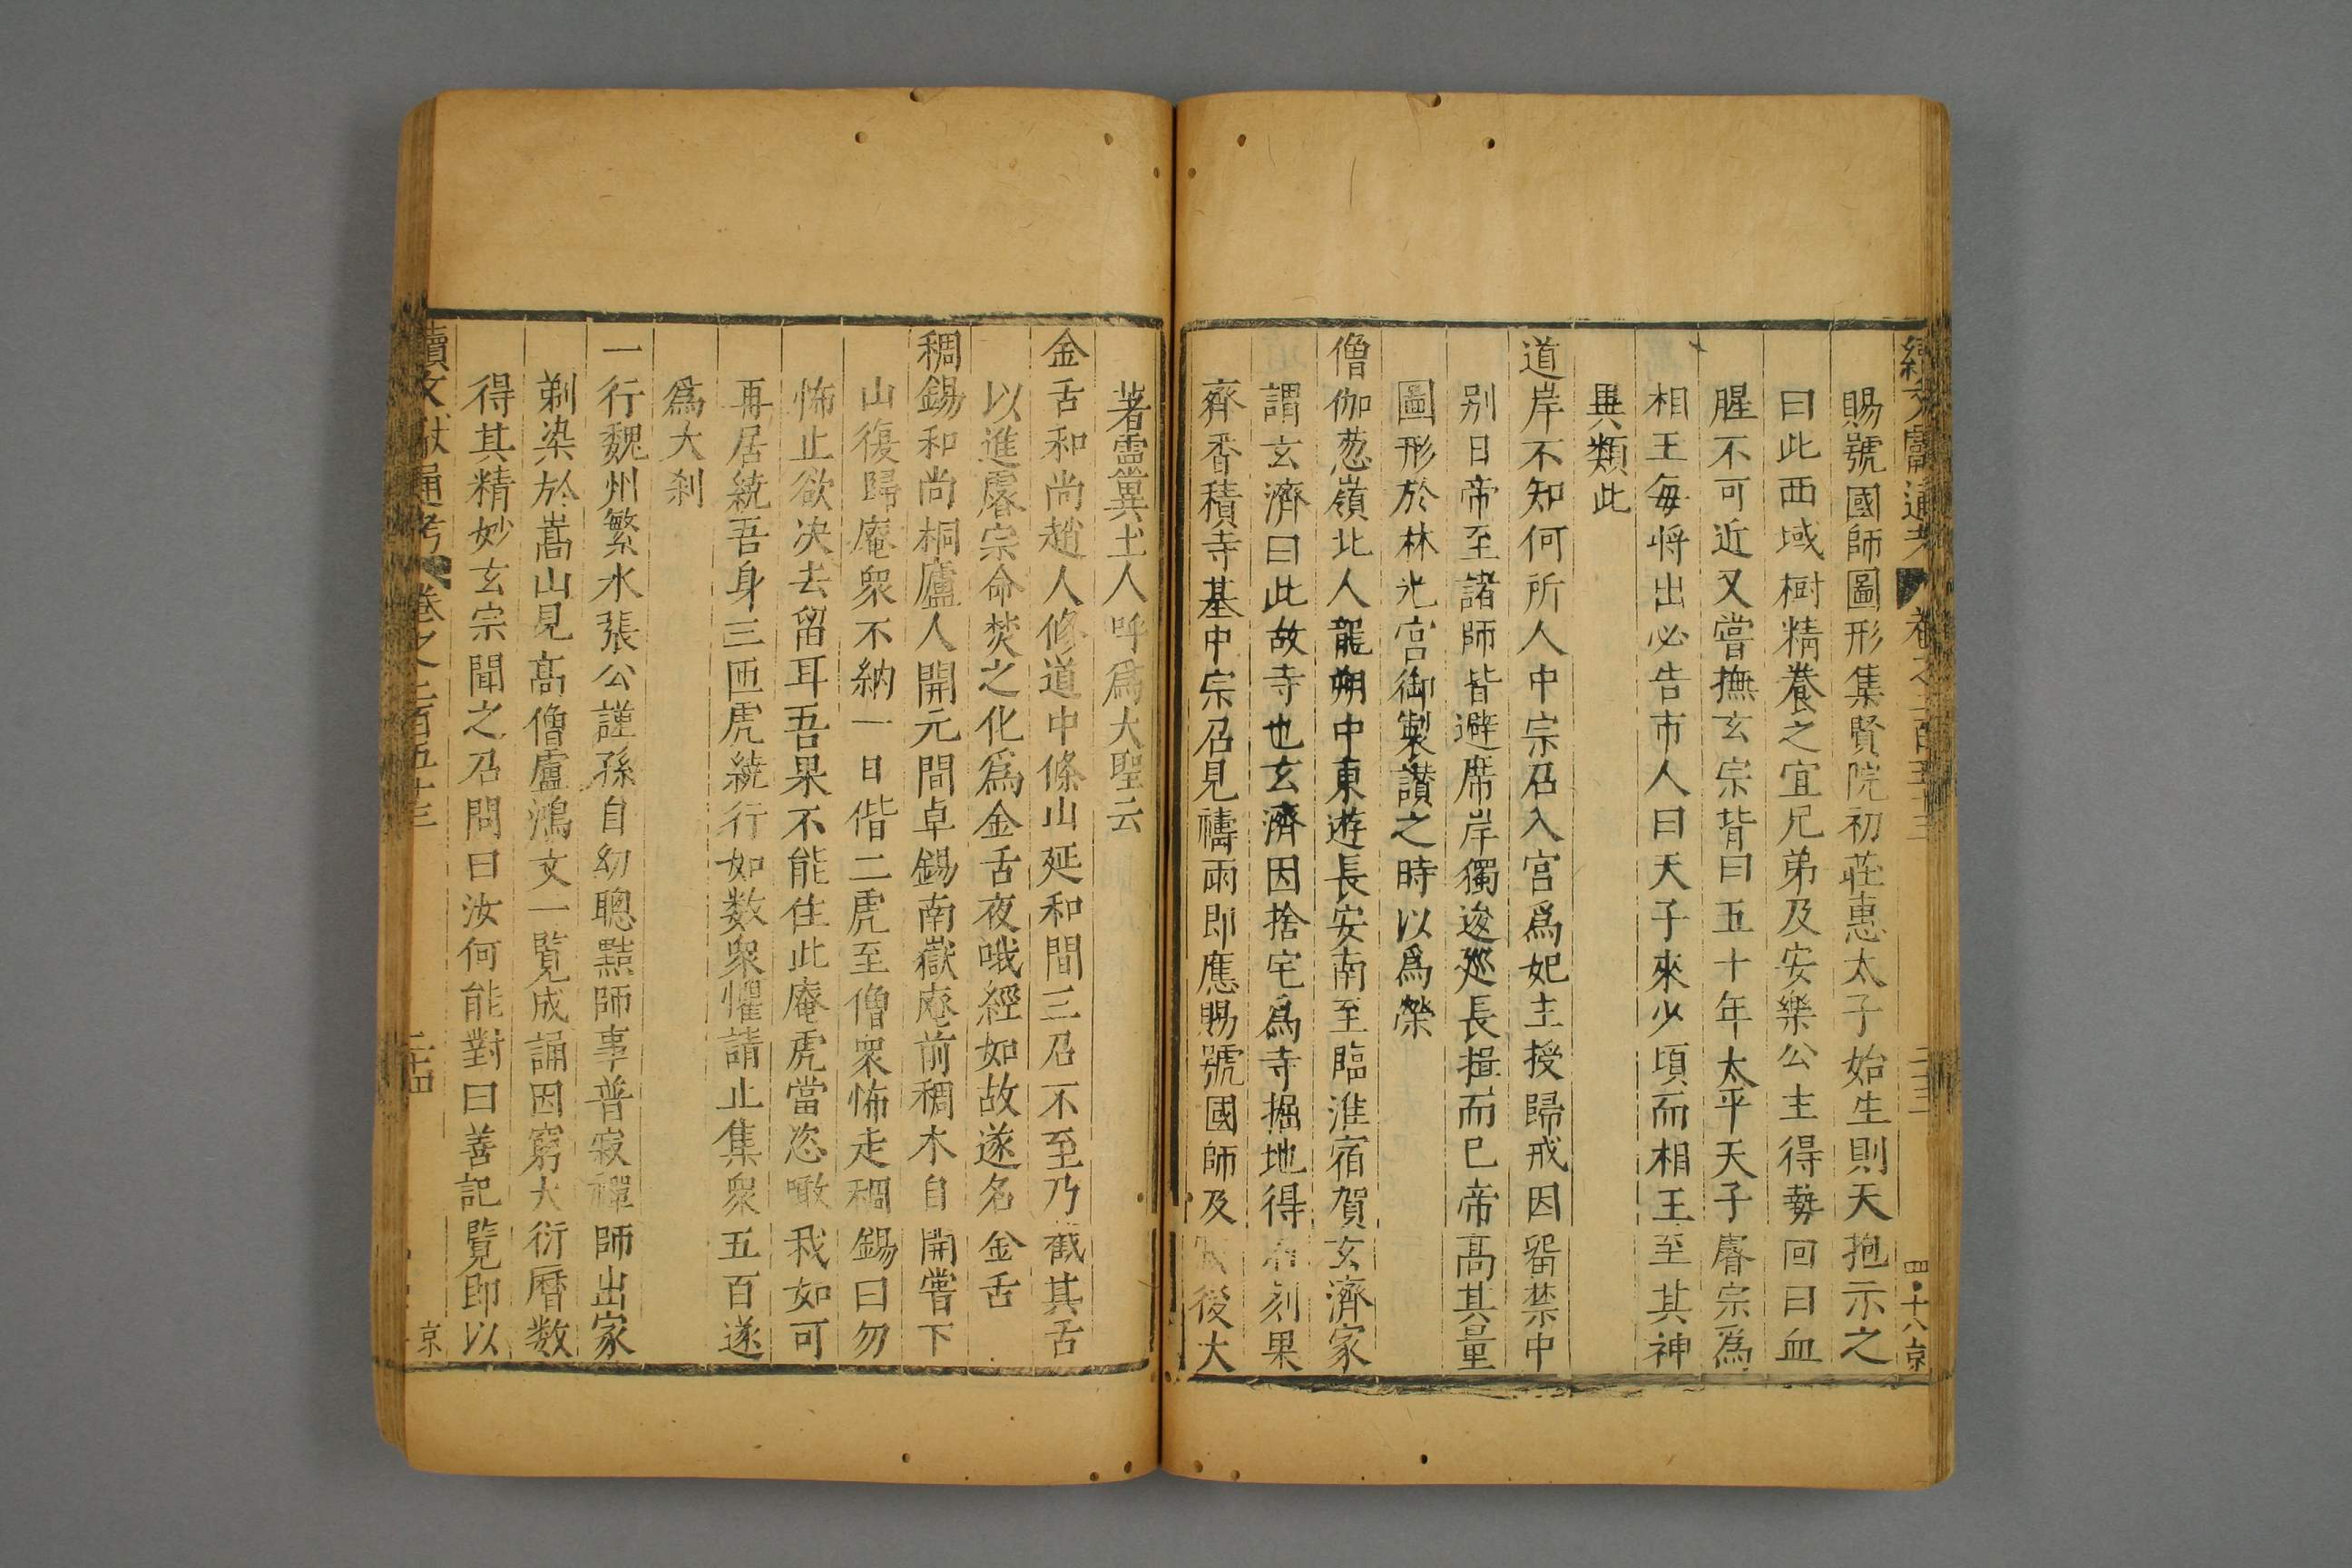 續文獻通考 卷之二百五十三 二十三 四十八 京
賜號國師圖形集賢院初莊惠太子始生則天抱示之
曰此西域樹精養之宜兄弟及安樂公主得勢回曰血
腥不可近又嘗撫玄宗背曰五十年太平天子睿宗爲
相王每将出必告市人曰天子來少頃而相王至其神
異類此
道岸不知何所人中宗召入宮爲妃主授歸戒因留禁中
别日帝至諸師皆避席岸獨逡廵長揖而已帝高其量
圖形於林光宮御製讃之時以爲榮
僧伽葱嶺北人龍朔中東遊長安南至臨淮宿賀玄濟家
謂玄濟曰此故寺也玄濟因捨宅爲寺掘地得刻果
齊香積寺基中宗召見禱雨即應賜號國師及後大
著靈異士人呼爲大聖云
金舌和尚趙人修道中條山延和間三召不至乃截其舌
以進睿宗命焚之化爲金舌夜哦經如故遂名金舌
稠錫和尚桐廬人開元間卓錫南嶽庵前稠木自開嘗下
山復歸庵衆不納一日偕二虎至僧衆怖走稠錫曰勿
怖止欲决去留耳吾果不能住此庵虎當恣噉我如可
再居繞吾身三匝虎繞行如数衆懼請止集衆五百遂
爲大刹
一行魏州繁水張公謹孫自幼聰黠師事普寂禪師出家
剃染於嵩山見高僧盧鴻文一覧成誦因窮大衍曆数
得其精妙玄宗聞之召問曰汝何能對曰善記覧即以
續文獻通考 卷之二百五十三 二十四 京